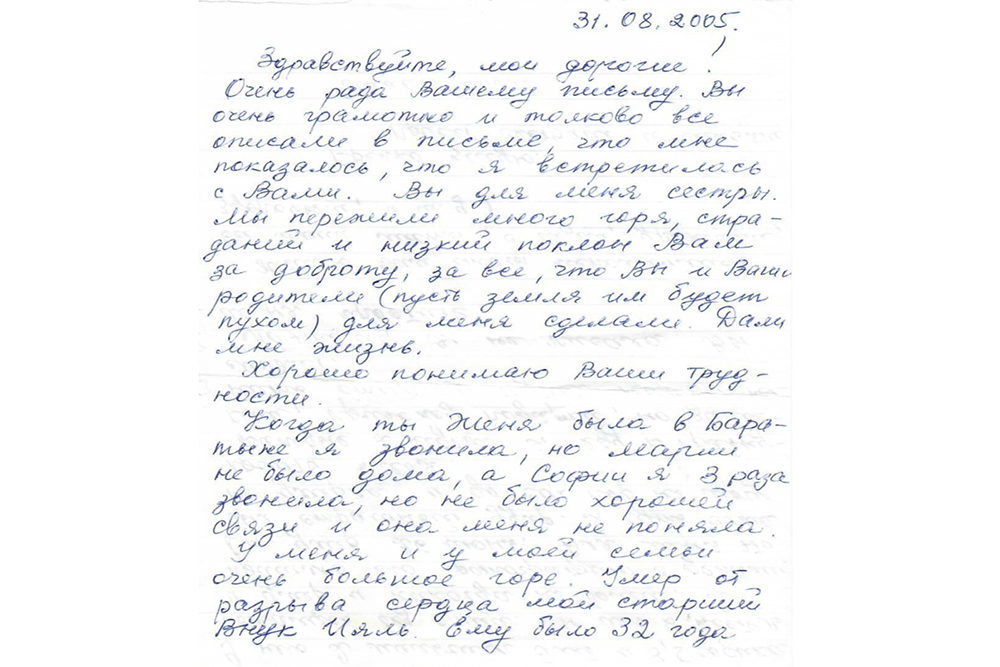 31.08.2005.
Здравствуйте, мои дорогие!
Очень рада Вашему письму. Вы
очень грамотно и толково все
описали в письме, что мне
показалось, что я встретилась
с Вами. Вы для меня сестры.
Мы пережили много горя, стра-
даний и низкий поклон Вам
за доброту, за все, что Вы и Ваши
родители (пусть земля им будет
пухом) для меня сделали. Дали
мне жизнь.
Хорошо понимаю Ваши труд-
ности.
Когда ты Женя была в Бара-
тыне я звонила, но Марии
не было дома, а Софии я 3 раза
звонила, но не было хорошей
связи и она меня не поняла.
У меня и у моей семьи
очень большое горе. Умер от
разрыва сердца мой старший
внук Ияль. Ему было 32 года